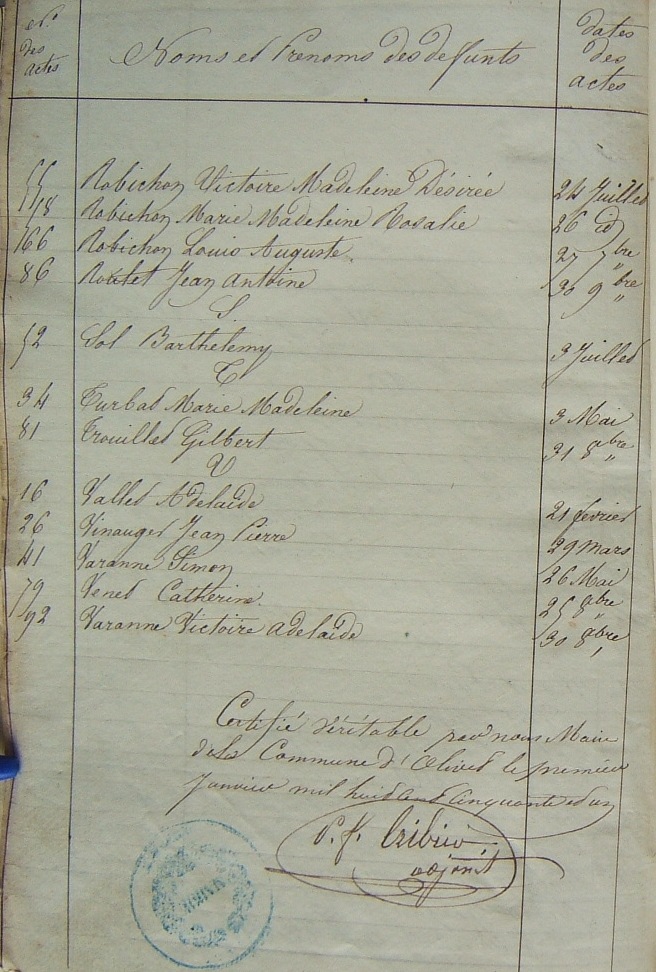 Nos des actes
Noms et Prénoms des defunts
dates des actes
55 Robichon Victoire Madeleine Désirée 24 Juillet
58 Robichon Marie Madeleine Rosalie 26 id
66 Robichon Louis Auguste 27 7bre
86 Roulet Jean Antoine 30 9bre
S.
52 Sol Barthelemy 3 Juillet
T
34 Turbat Marie Madeleine 3 Mai
81 Trouillet Gilbert 31 8bre
V
16 Vallet Adelaïde 21 fevrier
26 Vinauger Jean Pierre 29 Mars
41 Varanne Simon 26 Mai
79 Venet Catherine 25 8bre
92 Varanne Victoire adelaïde 30 Xbre
Certifié véritable par nous Maire
de la Commune d'Olivet le premier
Janvier mil huit cent cinquante et un
adjoint